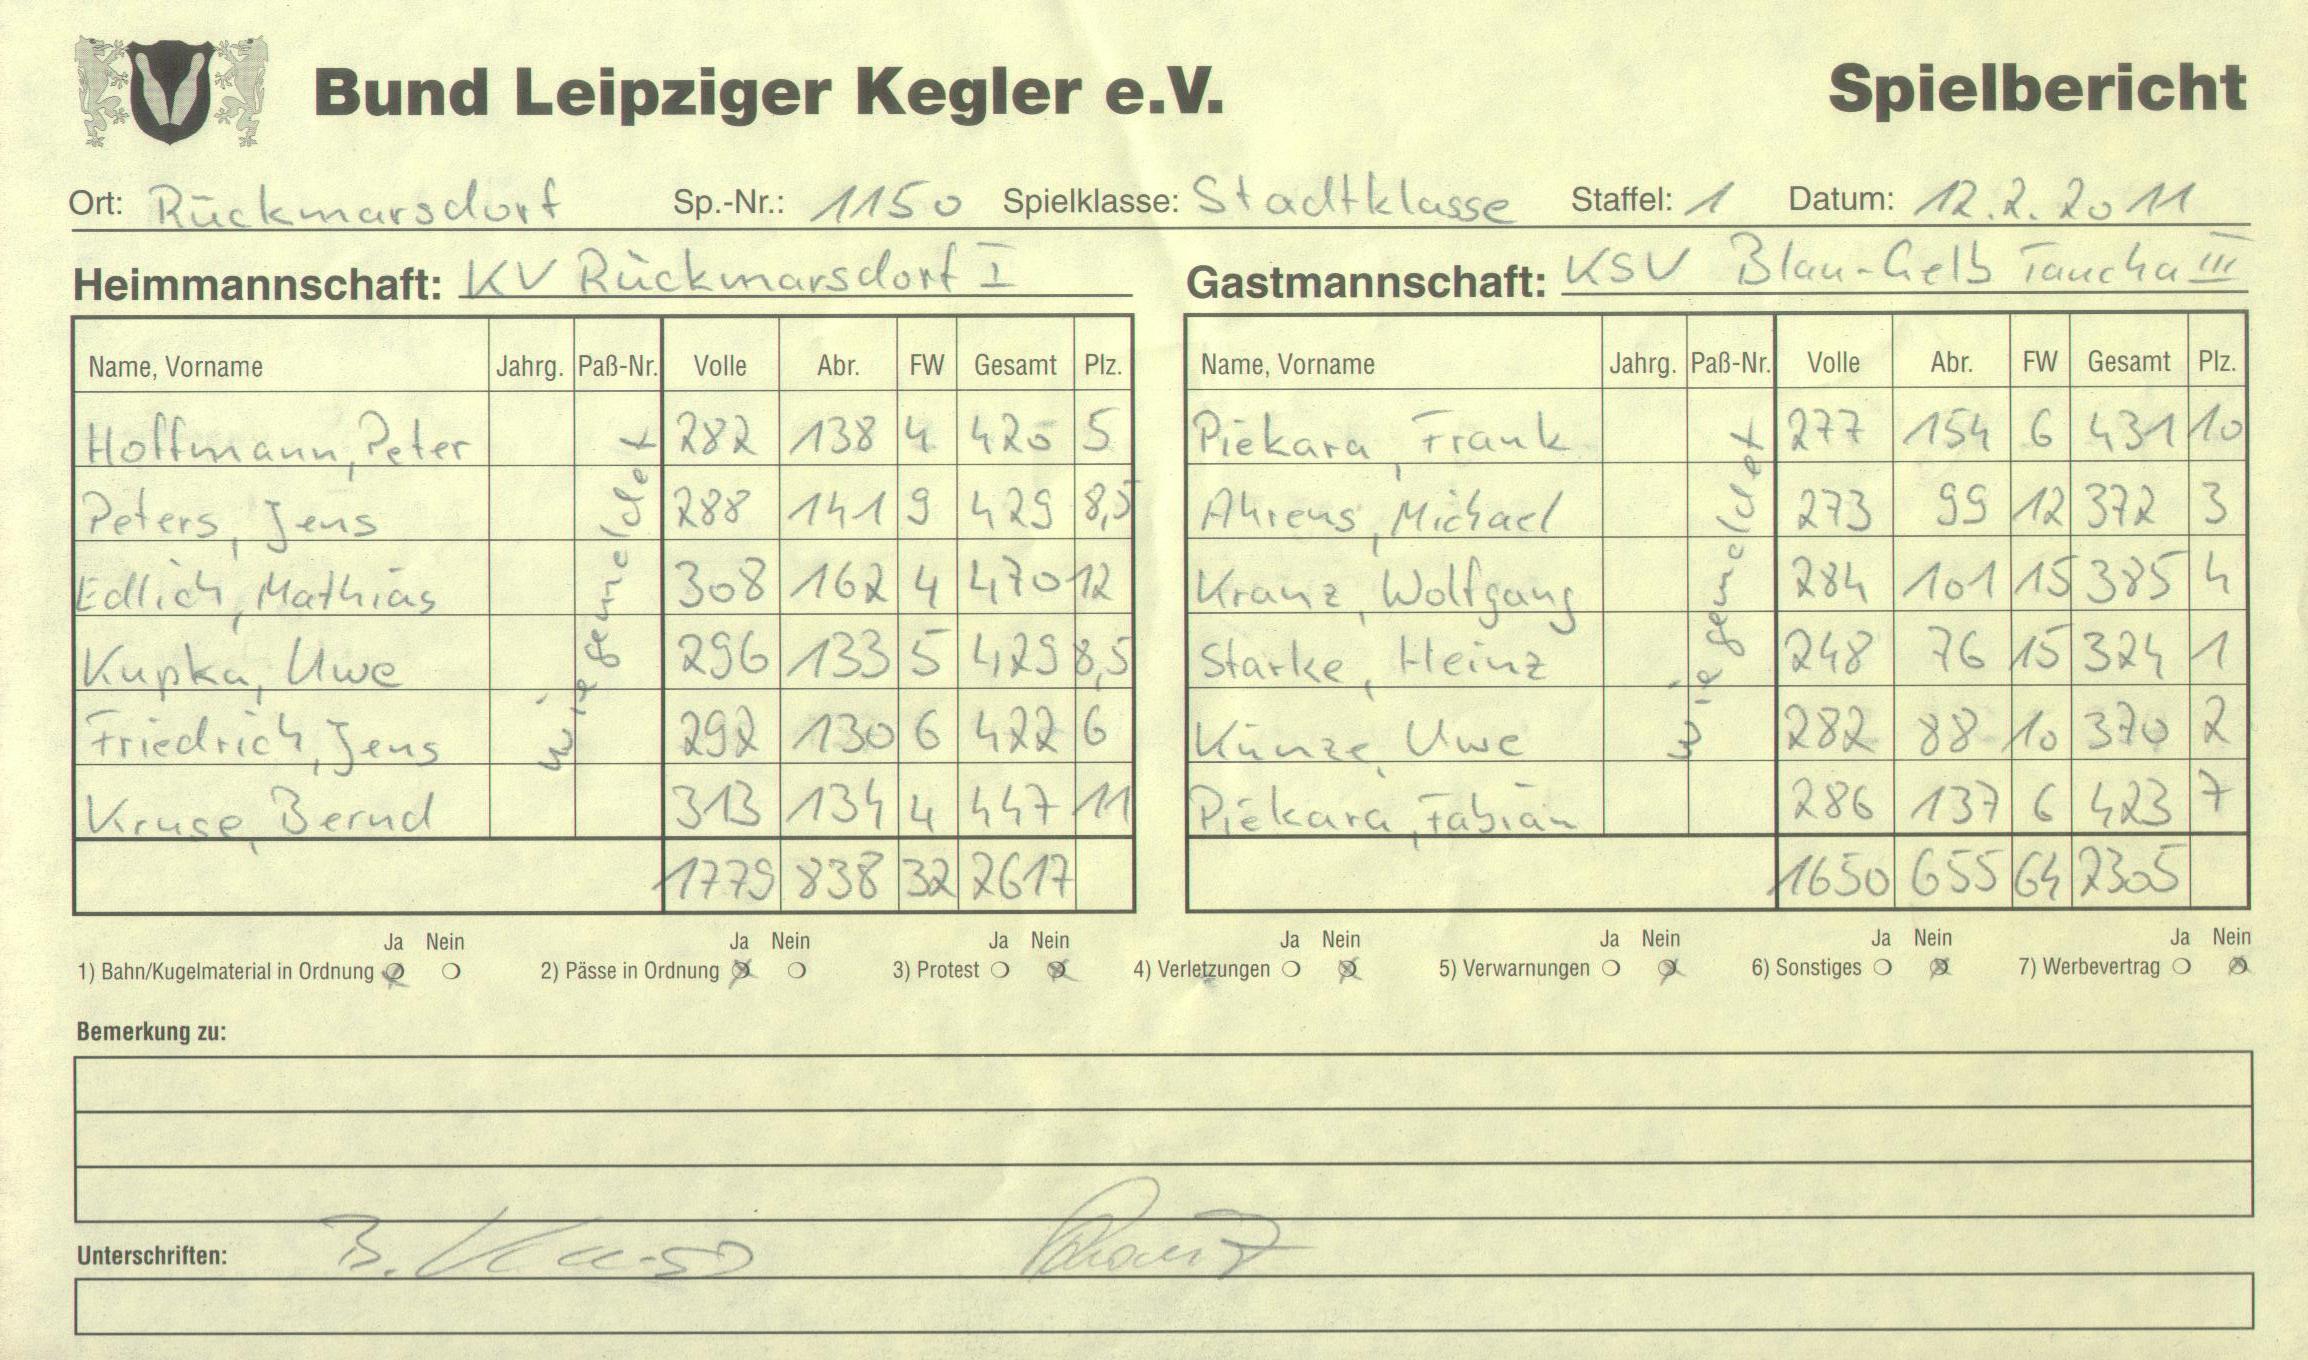 Bund Leipziger Kegler e.V. Spielbericht
Ort: Rückmarsdorf Sp.-Nr.: 1150 Spielklasse: Stadtklasse Staffel: 1 Datum: 12.2.2011
Heimmannschaft: KV Rückmarsdorf I Gastmannschaft: KSV Blau-Gelb Taucha III
Name, Vorname Jahrg. Paß-Nr. Volle Abr. FW Gesamt Plz. Name, Vorname Jahrg. Paß-Nr. Volle Abr. FW Gesamt Plz.
Hoffmann, Peter 282 138 4 420 5 Piekara, Frank 277 154 6 431 10
Peters, Jens 288 141 9 429 8,5 Ahrens, Michael 273 99 12 372 3
Edlich, Mathias 308 162 4 470 12 Kranz, Wolfgang 284 101 15 385 4
Kupka, Uwe 296 133 5 429 8,5 Starke, Heinz 248 76 15 324 1
Friedrich, Jens 292 130 6 422 6 Kunze, Uwe 282 88 10 370 2
Kruse, Bernd 313 134 4 447 11 Piekara, Fabian 286 137 6 423 7
wie gemeldet wie gemeldet
1779 838 32 2617 1650 655 64 2305
Ja Nein Ja Nein Ja Nein Ja Nein Ja Nein Ja Nein Ja Nein
1) Bahn/Kugelmaterial in Ordnung 2) Pässe in Ordnung 3) Protest 4) Verletzungen 5) Verwarnungen 6) Sonstiges 7) Werbevertrag
Bemerkung zu:
Unterschriften: B. Kruse